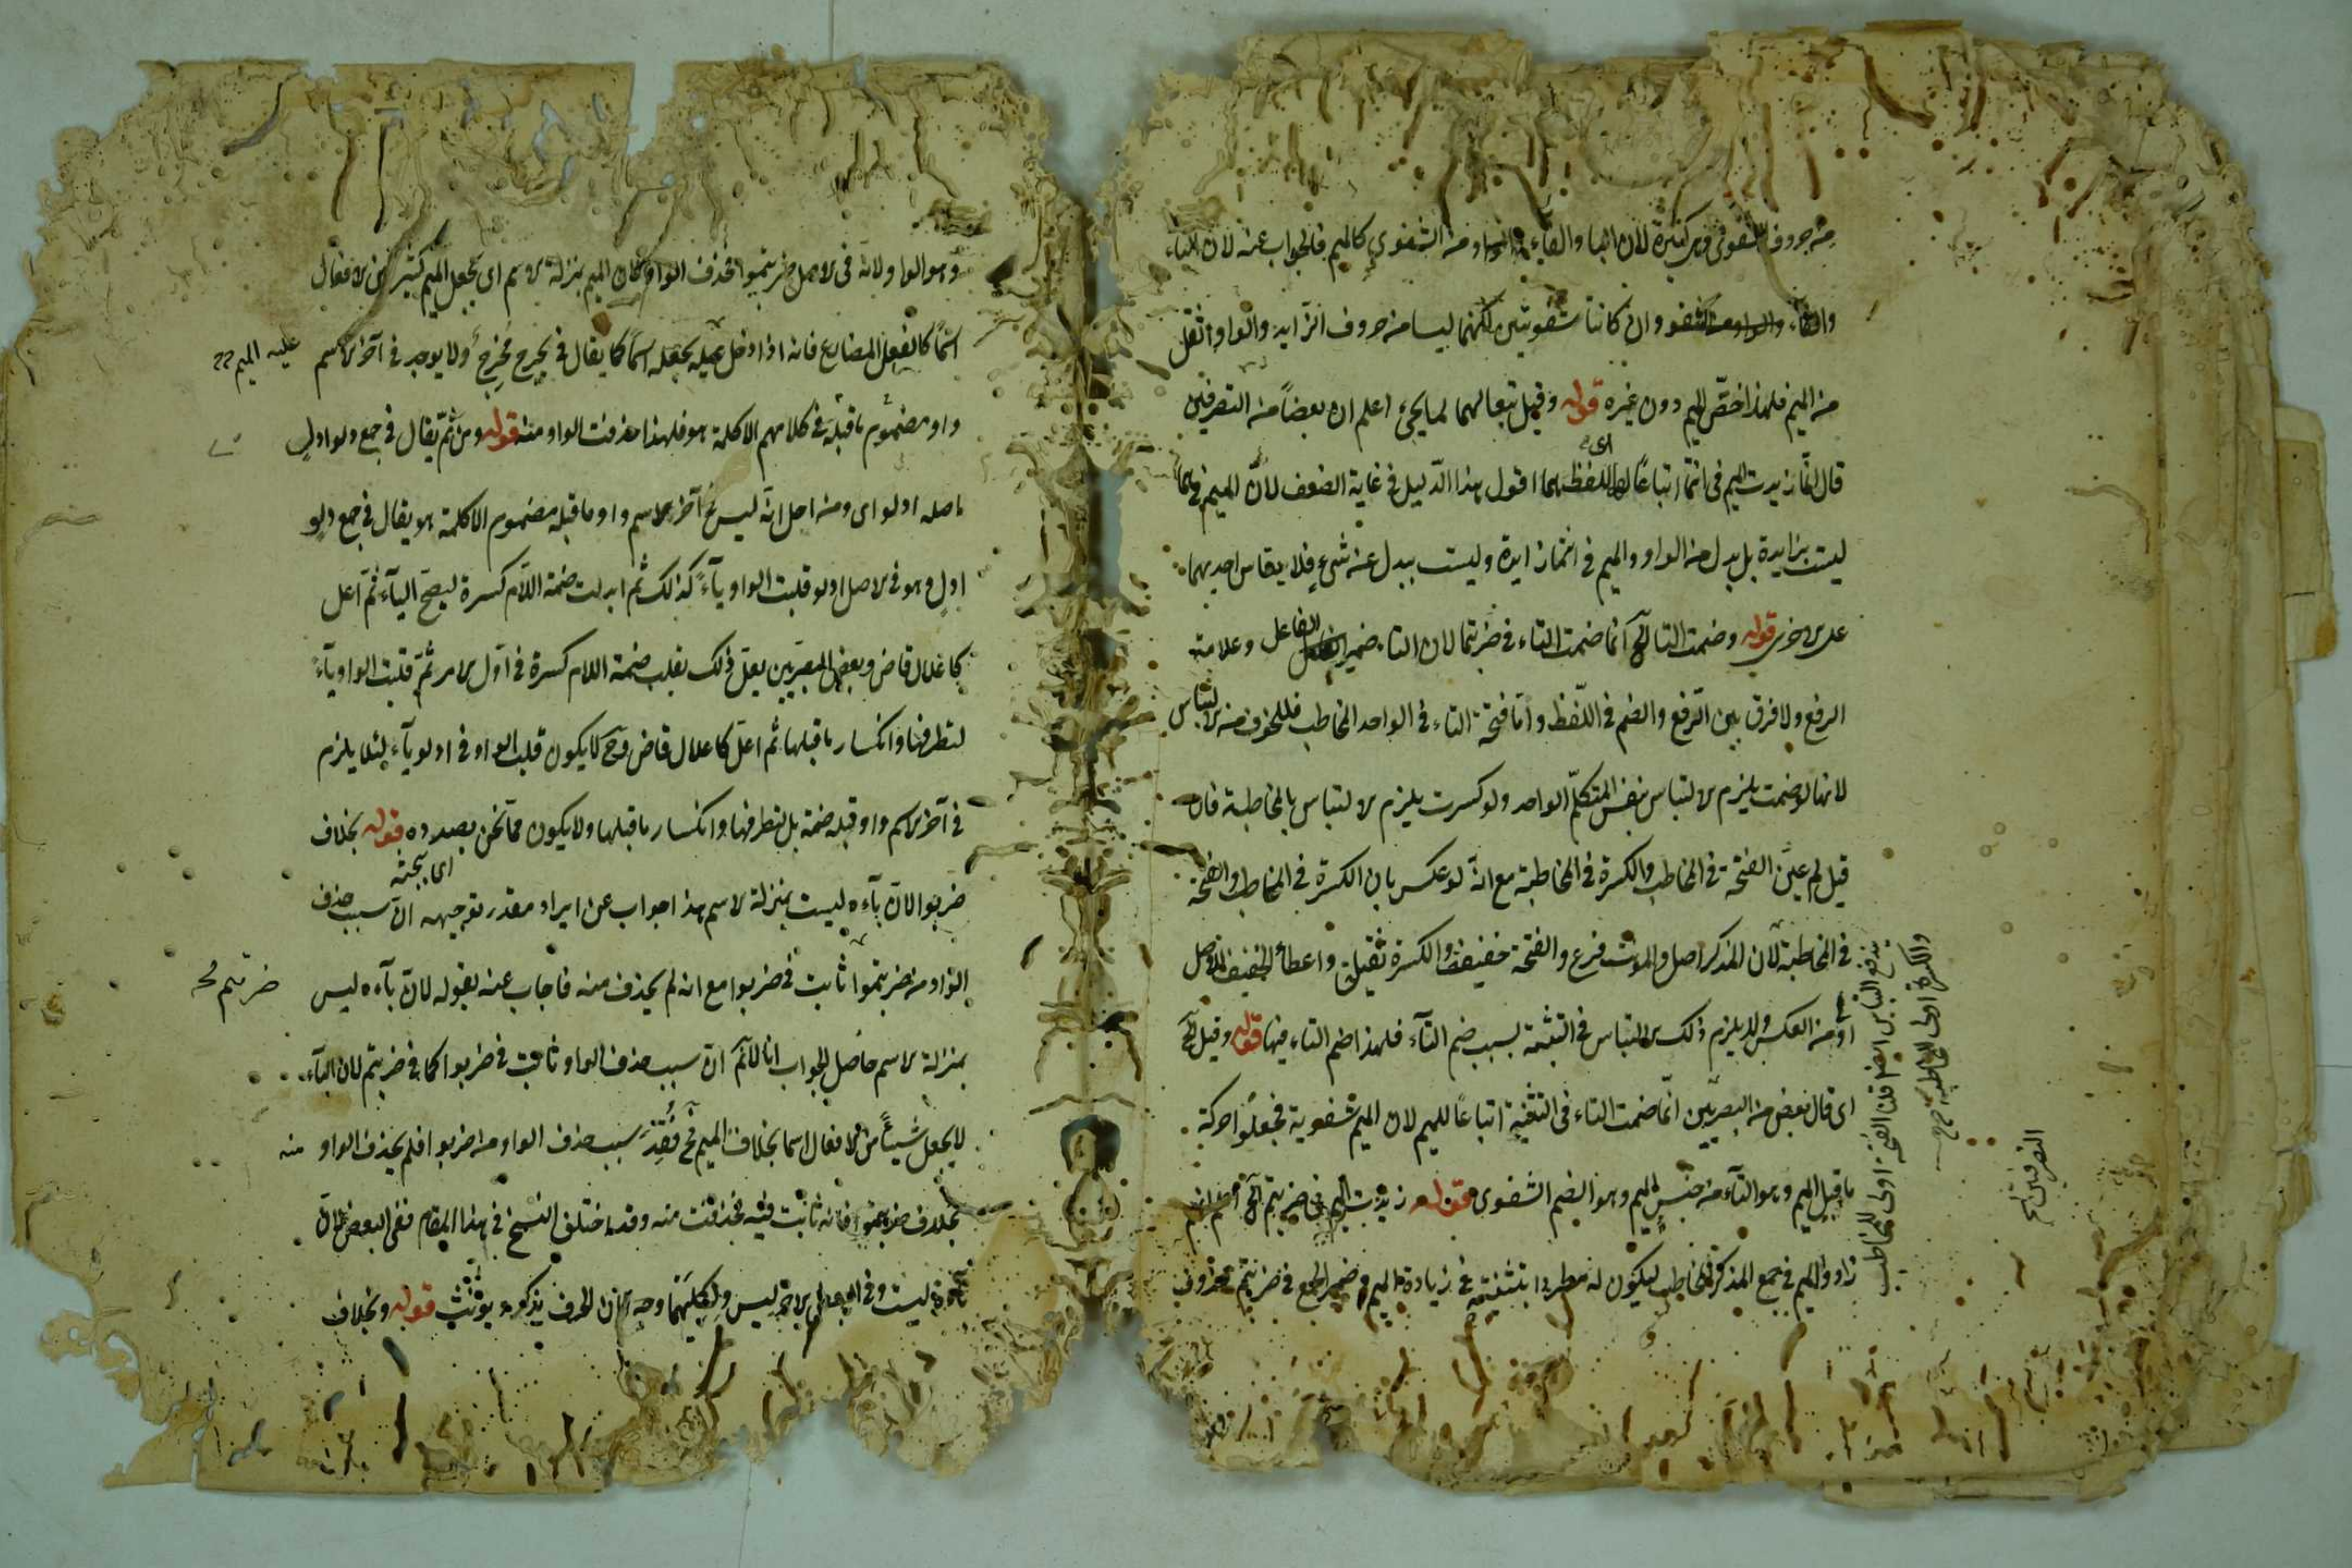 من حروف الشفوي وهي كثيرة لان الباء والفاء والواو من الشفوي كالميم فالجواب عنه لان الباء
والفاء وان كانتا شفويتين لكنهما ليسا من حروف الزايد والواو اثقل
من الميم فلهذا اختصّ الميم دون غيره قوله وقيل تبعا لهما لما يجئ اعلم ان بعضاً من التصرفين
قال انما زيدت الميم في انتما اتباعًا اى للفظ هما اقول هذا الدّليل في غاية الضعف لانّ الميم في هما
ليست بزايدة بل بدل من الواو والميم في انتما زايدة وليست ببدل عن شئ فلا يقاس احديهما
على الاخرى قوله وضمت التا آلخ انما ضمت التاء في ضربتما لان التاء ضمير الفاعل وعلامة
الرفع ولا فرق بين الرّفع والضم في اللّفظ وامّا فتحة التاء في الواحد المخاطب فللخوف من الالتباس
لانها لو ضمت يلزم الالتباس بنفس المتكلّم الواحد ولو كسرت يلزم الالتباس بالمخاطبة فان
قيل لم عيّن الفتحة في المخاطب والكسرة في المخاطبة مع انه لو عكس بان الكسرة في المخاطب والفتحة
في المخاطبة لان المذكر اصل والمؤنث فرع والفتحة خفيفة والكسرة ثقيلة واعطاء الخفيف للاصل
اولى من العكس ولا يلزم ذلك الالتباس في التثنية بسبب ضم التآء فلهذا ضم التاء فيها قوله وقيل الخ
اى قال بعض من البصريّين انّما ضمت التاء في التثنية اتباعًا للميم لان الميم شفوية فجعلوا حركة
ما قبل الميم وهو التآء من جنس الميم وهو الضم الشفوي قوله زيدت الميم في ضربتم آلخ اعلم انهم
زادوا الميم في جمع المذكر المخاطب ليكون له مطردا بتثنيته في زيادة الميم وضمير الجمع في ضربتم محذوف
يندفع التباس ايضا قلنا الفتحة اولى للمخاطب
والكسرة اولى للمخاطبة
التصرفين
وهو الواو لانه في الاصل ضربتموا فحذف الواو لان الميم بمنزلة الاسم اى يجعل الميم كثير من الافعال
اسمًا كالفعل المضارع فانه اذا دخل عليه يجعله اسمًا كما يقال في يخرج مخرج ولا يوجد في آخر الاسم
عليه الميم
واو مضموم ما قبله في كلامهم الا كلمة هو فلهذا حذفت الواو منه قوله ومن ثم يقال في جمع دلو ادل
اصله ادلو اى ومن اجل انّه ليس في آخر الاسم واو ما قبله مضموم الا كلمة هو يقال في جمع دلو
ادل وهو في الاصل ادلو قلبت الواو يآءً كذلك ثم ابدلت ضمة اللّام كسرة ليصحّ اليآء ثم اعل
كاعلال قاض وبعض البصريين يعلّ ذلك بقلب ضمة اللام كسرة في اول الامر ثم قلبت الواو يآءً
لتطرفها وانكسار ما قبلها ثم اعلّ كاعلال قاض وح لا يكون قلب الواو في ادلو يآء لئلا يلزم
في آخر الاسم واو قبله ضمة بل لتطرفها وانكسار ما قبلها ولا يكون مما نحن بصدده قوله بخلاف
اى بحثه
ضربوا لان بآءه ليست بمنزلة الاسم هذا جواب عن ايراد مقدر توجيهه ان سبب حذف
الواو من ضربتموا ثابت في ضربوا مع انه لم يحذف منه فاجاب عنه بقوله لان بآءه ليس
ضربتم
بمنزلة الاسم حاصل الجواب انا لا نم ان سبب حذف الواو ثابت في ضربوا كما في ضربتم لان البآء
لا يجعل شيئًا من الافعال اسما بخلاف الميم فح فُقِدَ سبب حذف الواو من ضربوا فلم يحذف الواو منه
بخلاف ضربتموا فانه ثابت فيه فحذفت منه وقد اختلف النسخ في هذا المقام ففي البعض لان
ليست وفي البعض الاخر ليس ولكليهما وجه لان الحرف يذكر ويؤنث قوله وبخلاف